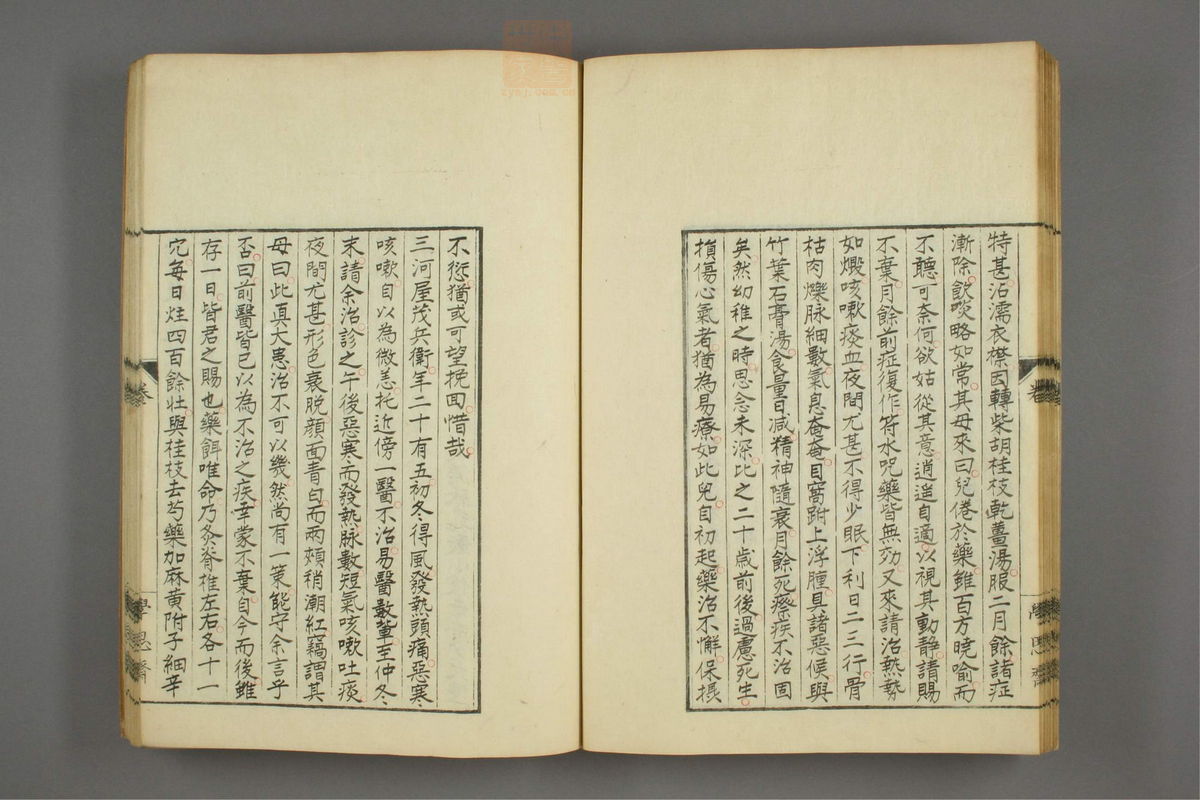 特甚沾濡衣襟因轉柴胡桂枝乾薑湯服二月餘諸症
漸除飲啖略如常其母來曰兒倦於藥雖百方曉喻而
不聽可奈何欲姑從其意逍遥自適以視其動静請賜
不棄月餘前症復作符水呪藥皆無効又來請治熱勢
如煅咳嗽痰血夜間尤甚不得少眠下利日二三行骨
枯肉爍脉細數氣息奄奄目窩跗上浮腫具諸惡候與
竹葉石膏湯食量日減精神隨衰月餘死瘵疾不治固
矣然幼稚之時思念未深比之二十歲前後過慮死生
損傷心氣者猶為易療如此兒自初起藥治不懈保攝
不愆猶或可望挽回惜哉
三河屋茂兵衛年二十有五初冬得風發熱頭痛惡寒
咳嗽自以為微恙托近傍一醫不治易醫數輩至仲冬
末請余治診之午後惡寒而發熱脉數短氣咳嗽吐痰
夜間尤甚形色衰脱顔面青白而兩頰稍潮紅竊謂其
母曰此真大患治不可以幾然尚有一策能守余言乎
否曰前醫皆已以為不治之疾幸蒙不棄自今而後雖
存一日皆君之賜也藥餌唯命乃灸脊椎左右各十一
穴每日炷四百餘壯與桂枝去芍藥加麻黄附子細辛
卷
學思齋